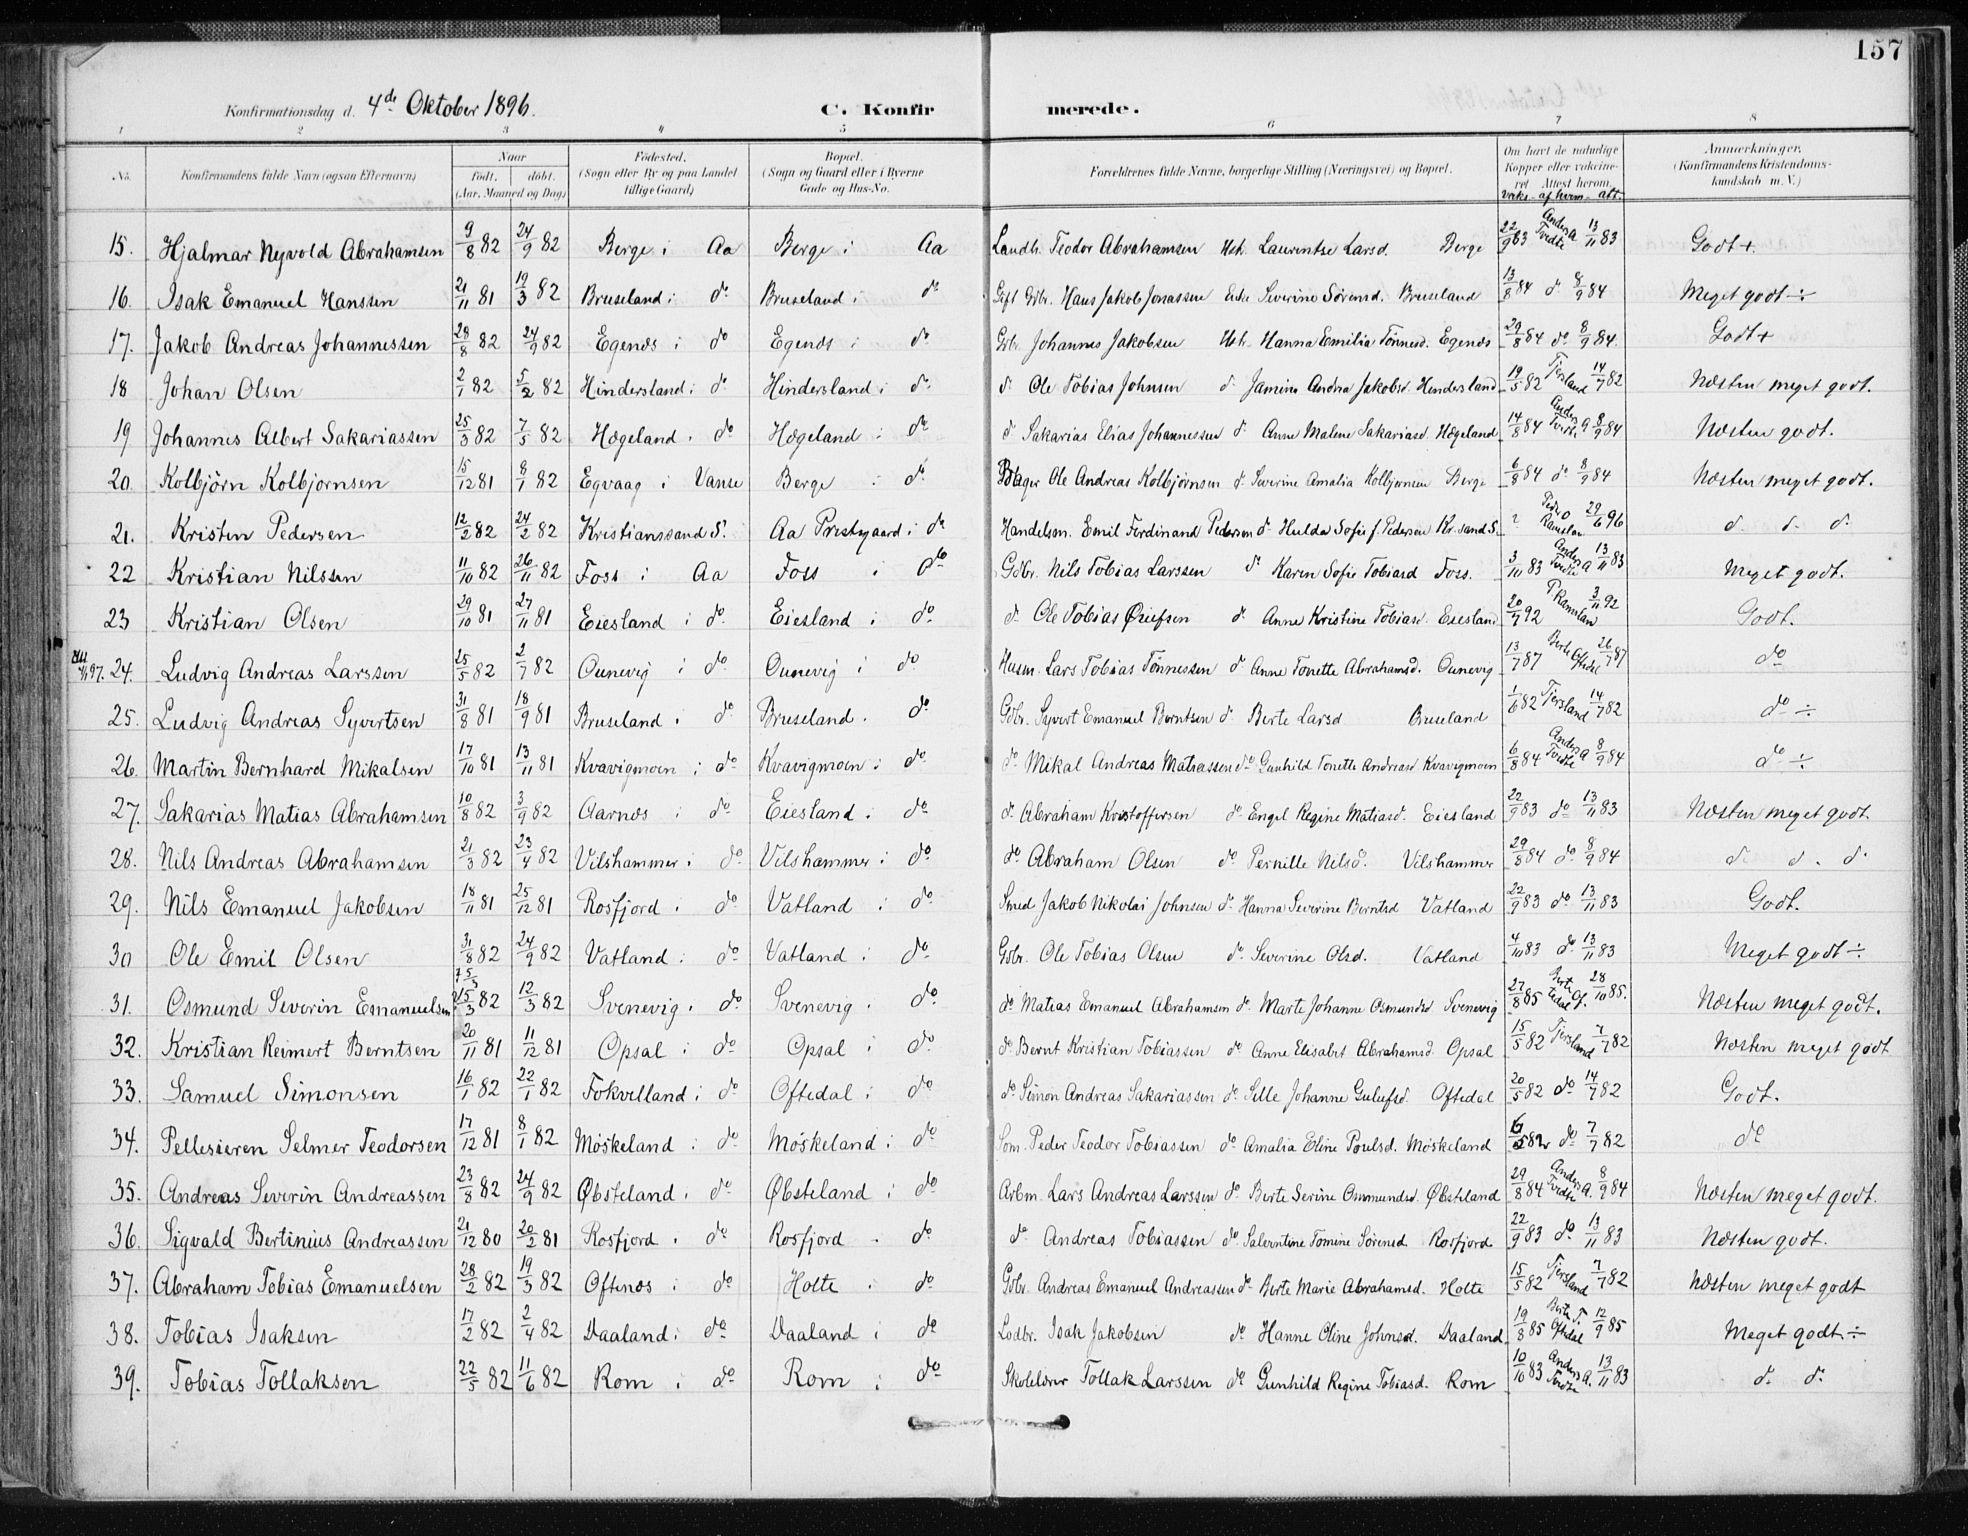 157
Konfirmationsdag d. 4de Oktober 1896. C. Konfir merede.
1 2 3 4 5 6 7 8
No. Konfirmandens fulde Navn (ogsaa Efternavn) Naar født. døbt. (Aar, Maaned og Dag) Fødested. (Sogn eller By og paa Landet tillige Gaard) Bopæl. (Sogn og Gaard eller i Byerne Gade og Hus-No. Forældrenes fulde Navne, borgerlige Stilling (Næringsvei) og Bopæl. Om havt de naturlige Kopper eller vakcineret Attest herom. vaks. af hvem att. Anmærkninger. (Konfirmandens Kristendomskundskab m. V.)
15. Hjalmar Nyvold Abrahamsen 9/8 82 24/9 82 Berge i Aa Berge i Aa Landh. Teodor Abrahamsen Hst. Laurentse Larsd. Berge 22/9 83 Anders A Tvedte 13/11 83 Godt +
16. Isak Emanuel Hanssen 21/11 81 19/3 82 Bruseland i do Bruseland i do Gift Gdbr. Hans Jakob Jonassen Enke Severine Sørensd. Bruseland 13/8 84 do 8/9 84 Meget godt ÷
17. Jakob Andreas Johannessen 28/8 82 24/9 82 Egenæs i do Egenæs i do Gdbr. Johannes Jakobsen Hst. Hanna Emilia Tønnesd. Egenæs 29/8 84 do 8/9 84. Godt +
18 Johan Olsen 2/1 82 5/2 82 Hindersland i do Hindersland i do do Ole Tobias Johnsen do Jamine Andrea Jakobsd. Hindersland 19/5 82 Tjersland 14/7 82 Næsten meget godt.
19 Johannes Albert Sakariassen 25/3 82 7/5 82 Hægeland i do Hægeland i do do Sakarias Elias Johannessen do Anne Malene Sakariasd. Hægeland 14/8 84 Anders A Tvedte 8/9 84 Næsten godt.
20. Kolbjørn Kolbjørnsen 15/12 81 8/1 82 Egvaag i Vanse Berge i do Bager Ole Andreas Kolbjørnsen do Severine Amalia Kolbjørnsen Berge 6/8 84 do 8/9 84 Næsten meget godt.
21. Kristen Pedersen 12/2 82 24/2 82 Kristianssand S. Aa Prestgaard i do Handelsm. Emil Ferdinand Pedersen do Hulda Sofie f. Pedersen Kr.sand S. ? Peder O Ramslan 29/6 96 do do do
22 Kristian Nilssen 11/10 82 26/11 82 Foss i Aa Foss i do Gdbr. Nils Tobias Larssen do Karen Sofie Tobiasd Foss. 3/10 83 Anders A Tvedte 13/11 83 Meget godt.
23 Kristian Olsen 29/10 81 27/11 81 Eiesland i do Eiesland i do do Ole Tobias Øriefsen do Anne Kristine Tobiasd. Eiesland 20/9 92 P. Ramslan 3/11 92 Godt.
97. 24. Ludvig Andreas Larssen 25/5 82 2/7 82 Ounevig i do Ounevig i do Husm. Lars Tobias Tønnessen do Anne Tonette Abrahamsd. Ounevig 13/7 87 Berte Oftedal 26/7 87 do
25. Ludvig Andreas Syvertsen 31/8 81 18/9 81 Bruseland i do Bruseland. do Gdbr. Syvert Emanuel Berntsen do Berte Larsd Bruseland 1/6 82 Tjersland 14/7 82 do ÷
26. Martin Bernhard Mikalsen 17/10 81 13/11 81 Kvavigmoen i do Kvavigmoen i do do Mikal Andreas Matiassen do Gunhild Tonette Andreasd Kvavigmoen 6/8 84 Anders A Tvedte 8/9 84 do ÷
27. Sakarias Matias Abrahamsen 10/8 82 3/9 82 Aarnæs i do Eiesland i do do Abraham Kristoffersen do Engel Regine Matiasd. Eiesland 22/9 83 do 13/11 83 Næsten meget godt.
28. Nils Andreas Abrahamsen 21/3 82 23/4 82 Vilshammer i do Vilshammer i do do Abraham Olsen do Pernille Nilsd. Vilshammer 29/8 84 do 8/9 84 do do do
29. Nils Emanuel Jakobsen 18/11 81 25/12 81 Rosfjord i do Vatland i do Smed Jakob Nikolai Johnsen do Hanna Severine Berntsd Vatland 22/9 83 do 13/11 83 Godt.
30 Ole Emil Olsen 31/8 82 24/9 82 Vatland i do Vatland i do Gdbr. Ole Tobias Olsen do Severine Olsd. Vatland 4/10 83 do 13/11 83 Meget godt ÷
31. Osmund Severin Emanuelsen 15/3 82 12/3 82 Svenevig i do Svenevig i do do Matias Emanuel Abrahamsen do Marte Johanne Osmundsd Svenevig 27/8 85 28/10 85. Næsten meget godt.
32. Kristian Reimert Berntsen 20/11 81 11/12 81 Opsal i do Opsal i do do Bernt Kristian Tobiassen do Anne Elisabet Abrahamsd. Opsal 15/5 82 Tjersland 7/7 82 Næsten meget godt
33. Samuel Simonsen 16/1 82 22/1 82 Fokvelland i do Oftedal i do do Simon Andreas Sakariassen do Sille Johanne Gulufsd. Oftedal 20/5 82 do 14/7 82 Godt.
34. Pellesieren Selmer Teodorsen 17/12 81 8/1 82 Møskeland i do Møskeland i do Søm. Peder Teodor Tobiassen do Amalia Eline Poulsd. Møskeland 6/5 82 do 7/7 82 do
35. Andreas Severin Andreassen 23/8 82 24/9 82 Øbsteland i do Øbsteland i do Arbm. Lars Andreas Larssen do Berte Serine Osmundsd. Øbsteland 29/8 84 Anders A. Tvedte 8/9 84 Næsten meget godt.
36. Sigvald Bertinius Andreassen 21/12 80 20/2 81 Rosfjord i do Rosfjord do do Andreas Tobiassen do Salventine Tomine Sørensd Rosfjord 22/9 83 do 13/11 83 Næsten godt.
37. Abraham Tobias Emanuelsen 28/2 82 19/3 82 Oftenæs i do Holte i do Gdbr. Andreas Emanuel Andreassen do Berte Marie Abrahamsd. Holte 15/5 82 Tjersland 7/7 82 Næsten meget godt
38. Tobias Isaksen 17/2 82 2/4 82 Daaland i do Daaland i do Lodbr. Isak Jakobsen do Hanne Oline Johnsd. Daaland 19/8 85 Berte T. Oftedal 12/9 85 Meget godt ÷
39. Tobias Tollaksen 22/5 82 11/6 82 Rom i do Rom i do Skolelærer Tollak Larssen do Gunhild Regine Tobiasd. Rom 10/10 83 Anders A. Tvedte 13/11 83 do do